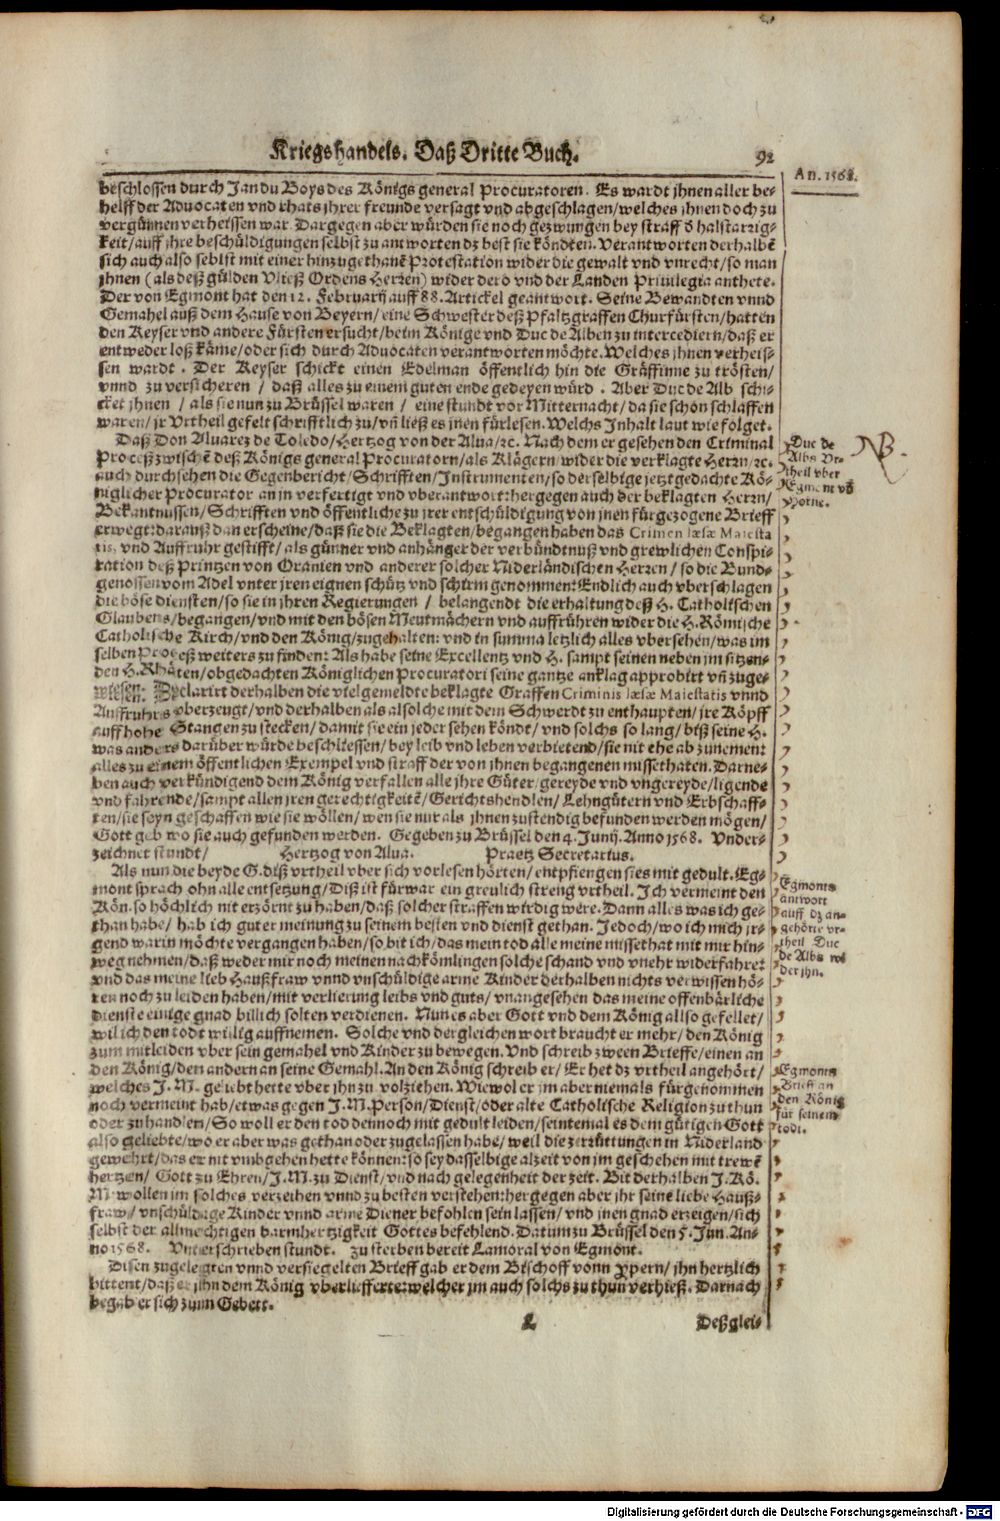 Kriegshandels. Daß Dritte Buch. 92
An. 1568.
beschlossen durch Jan du Boys des Königs general Procuratoren. Es wardt jhnen aller be-
helff der Advocaten vnd rhats jhrer freunde versagt vnd abgeschlagen/welches jhnen doch zu
vergünnen verheissen war. Dargegen aber würden sie noch gezwungen bey straff d̄ halstarrig-
keit/auff jhre beschüldigungen selbst zu antworten dz best sie köndten. Verantworten derhalbē
sich auch also seblst mit einer hinzugethanē Protestation wider die gewalt vnd vnrecht/so man
jhnen (als deß gülden Vließ Ordens Herzen) wider dero vnd der Landen Priuilegia anthete.
Der von Egmont hat den 12. Februarij auff 88. Artickel geantwort. Seine Bewandten vnnd
Gemahel auß dem Hause von Beyern/eine Schwester deß Pfaltzgraffen Churfürsten/hatten
den Keyser vnd andere Fürsten ersucht/beim Könige vnd Duc de Alben zu intercediern/daß er
entweder loß käme/oder sich durch Advocaten verantworten möchte. Welches jhnen verheis-
sen wardt. Der Keyser schickt einen Edelman öffentlich hin die Gräffinne zu trösten/
vnnd zu versicheren / daß alles zu einem guten ende gedeyen würd. Aber Duc de Alb schi-
cket jhnen / als sie nun zu Brüssel waren / eine stundt vor Mitternacht/da sie schon schlaffen
waren/jr Vrtheil gefelt schrifftlich zu/vn̄ ließ es jnen fürlesen. Welchs Inhalt laut wie folget.
Daß Don Alvarez de Toledo/Hertzog von der Alua/ꝛc. Nach dem er gesehen den Criminal
Proceß zwischē deß Königs general Procuratorn/als Klägern/wider die verklagte Herrn/ꝛc.
auch durchsehen die Gegenbericht/Schrifften/Instrumenten/so derselbige jetztgedachte Kö-
niglicher Procurator an in verfertigt vnd vberantwort: hergegen auch der beklagten Herrn/
Bekantnussen/Schrifften vnd öffentliche zu jrer entschüldigung von jnen fürgezogene Brieff
erwegt: darauß dan erscheine/daß sie die Beklagten/begangen haben das Crimen læsæ Maiesta
tis, vnd Auffruhr gestifft/als günner vnd anhänger der verbündtnuß vnd grewlichen Conspi-
ration deß Printzen von Oranien vnd anderer solcher Niderländischen Herzen / so die Bund-
genossen vom Adel vnter jren eignen schütz vnd schirm genommen: Endlich auch vberschlagen
die böse diensten/so sie in jhren Regierungen / belangendt die erhaltung deß H. Catholischen
Glaubens/begangen/vnd mit den bösen Meutmächern vnd auffrühren wider die H. Römische
Catholische Kirch/vnd den König/zugehalten: vnd in summa letzlich alles vbersehen/was im
selben Proceß weiters zu finden: Als habe seine Excellentz vnd H. sampt seinen neben jm sitzen-
den H. Rhäten/obgedachten Königlichen Procuratori seine gantze anklag approbirt vn̄ zuge-
wiesen: Declarirt derhalben die vielgemeldte beklagte Graffen Criminis læsæ Maiestatis vnnd
Auffruhrs vberzeugt/vnd derhalben als alsolche mit dem Schwerdt zu enthaupten/jre Köpff
auff hohe Stangen zu stecken/damit sie ein jeder sehen köndt/vnd solchs so lang/biß seine H.
was anders darüber würde beschliessen/bey leib vnd leben verbietend/sie mit ehe abzunemen:
alles zu einem öffentlichen Exempel vnd straff der von jhnen begangenen missethaten. Darne-
ben auch verkündigend dem König verfallen alle jhre Güter/gereyde vnd vngereyde/ligende
vnd fahrende/sampt allen jren gerechtigkeitē/Gerichtshendlen/Lehngütern vnd Erbschaff-
ten/sie seyn geschaffen wie sie wöllen/wen sie nur als jhnen zustendig befunden werden mögen/
Gott geb wo sie auch gefunden werden. Gegeben zu Brüssel den 4. Junij. Anno 1568. Vnder-
zeichnet stundt/ Hertzog von Alua. Praetz Secretarius.
Als nun die beyde G. diß vrtheil vber sich vorlesen hörten/entpfiengen sies mit gedult. Eg-
mont sprach ohn alle entsetzung/Diß ist fürwar ein greulich streng vrtheil. Ich vermeint den
Kön. so höchlich nit erzörnt zu haben/daß solcher straffen wirdig were. Dann alles was ich ge-
than habe/ hab ich guter meinung zu seinem besten vnd dienst gethan. Jedoch/wo ich mich jr-
gend warin möchte vergangen haben/so bit ich/das mein tod alle meine missethat mit mir hin-
weg nehmen/daß weder mir noch meinen nachkömlingen solche schand vnd vnehr widerfahre:
vnd das meine lieb Haußfraw vnnd vnschüldige arme Kinder derhalben nichts verwissen hö-
ren noch zu leiden haben/mit verlierung leibs vnd guts/vnangesehen das meine offenbärliche
dienste einige gnad billich solten verdienen. Nun es aber Gott vnd dem König allso gefellet/
wil ich den todt willig auffnemen. Solche vnd dergleichen wort braucht er mehr/den König
zum mitleiden vber sein gemahel vnd Kinder zu bewegen. Vnd schreib zween Brieffe/einen an
den König/den andern an seine Gemahl. An den König schreib er/Er het dz vrtheil angehört/
welches J. M. geliebt hette vber jhn zu volziehen. Wiewol er jm aber niemals fürgenommen
noch vermeint hab/etwas gegen J. M. Person/Dienst/oder alte Catholische Religion zu thun
oder zu handlen/So woll er den tod dennoch mit gedult leiden/seintemal es dem gütigen Gott
also geliebte/wo er aber was gethan oder zugelassen habe/weil die zerrüttungen in Niderland
gewehrt/das er nit vmbgehen hette können: so sey dasselbige alzeit von jm geschehen mit trewē
hertzen/ Gott zu Ehren/J. M. zu Dienst/vnd nach gelegenheit der zeit. Bit derhalben J. Kö.
M. wollen jm solches verzeihen vnnd zu besten verstehen: hergegen aber jhr seine liebe Hauß-
fraw/vnschüldige Kinder vnnd arme Diener befohlen sein lassen/vnd jnen gnad erzeigen/sich
selbst der allmechtigen barmhertzigkeit Gottes befehlend. Datum zu Brüssel den 5. Jun. An-
no 1568. Vnterschrieben stundt. zu sterben bereit Lamoral von Egmont.
Disen zugelegten vnnd versiegelten Brieff gab er dem Bischoff vonn Ypern/ jhn hertzlich
bittent/daß er jhn dem König vberlieffert: welcher jm auch solchs zu thun verhieß. Darnach
begab er sich zum Gebett.
L Deßglei-
Duc de
Albs Vr-
theil vber
Egmont vñ
Horne.
NB.
Egmonts
antwort
auff dz an-
gehörte vr-
theil Duc
de Albs wi
der jhn.
Egmonts
Brieff an
den König
für seinem
todt.
Digitalisierung gefördert durch die Deutsche Forschungsgemeinschaft - DFG